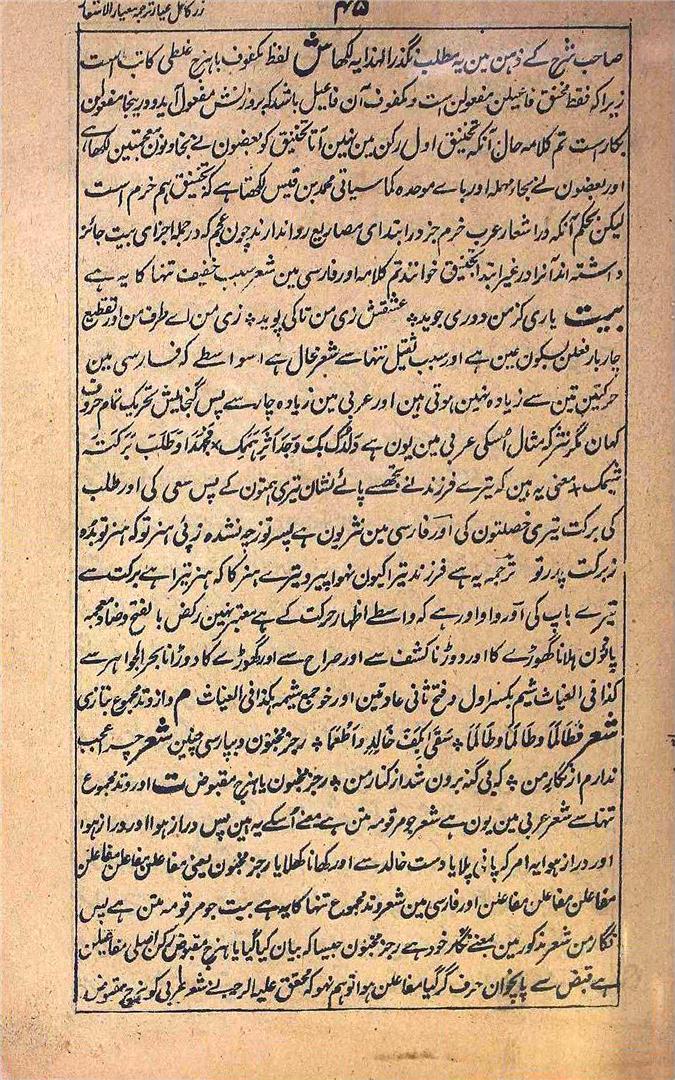 زر کامل عیار ترجمہ معیار الاشعار
۴۵
صاحب شرح کے ذہن مین یہ مطلب نگذرا لہذا یہ لکھا ش لفظ مکفوف یا ہزج غلطی کاتب است
زیرا کہ فقط مخنق مفاعیلن مفعولن است و مکفوف آن فاعیل باشد کہ بر وزنش مفعول آید و درینجا مفعولن
بکار است تم کلامہ حال آنکہ تخنیق اول رکن مین نہین آتا تخنیق کو بعضون نے بخا و نون معجمتین لکھا ہے
اور بعضون نے بحاے مہملہ اور باے موحدہ کما سیاتی محمد بن قیس لکھتا ہے کہ تخنیق ہم خرم است
لیکن بحکم آنکہ در اشعار عرب خرم جز در ابتدای مصاریع روا ندارند چون عجم کہ در جملہ اجزای بیت جائز
داشتہ اند آنرا در غیر ابتدا تخنیق خوانند تم کلامہ اور فارسی مین شعر سبب خفیف تنہا کا یہ ہے
بیت یاری کز من دوری جوید * عشقش زی من تاکی پوید * زی من اے طرف من اور تقطیع
چار بار فعلن بسکون عین ہے اور سبب ثقیل تنہا سے شعر محال ہے اسواسطے کہ فارسی مین
حرکتین تین سے زیادہ نہین ہوتی ہین اور عربی مین زیادہ چار سے پس گنجایش تحریک تمام حروف
کہان مگر نثر کہ مثال اُسکی عربی مین یون ہے وَلَدُکَ بِکَ وَجَدَ اَثَرَ ہِمَمِکَ * فَجَہَدَ اَوْ طَلَبَ بَرَکَتَہَ
شِیَمِکَ * معنی یہ ہین کہ تیرے فرزند نے تجھسے پائے نشان تیری ہمتون کے پس سعی کی اور طلب
کی برکت تیری خصلتون کی اور فارسی مین نثر یون ہے پسر تو ز چہ نشدہ ز پی ہنر تو کہ ہنر تو بدہ
ز برکت پدر تو ترجمہ یہ ہے فرزند تیرا کیون نہوا پیرو تیرے ہنر کا کہ ہنر تیرا ہے برکت سے
تیرے باپ کی اور واو اور ہے کہ واسطے اظہار حرکت کے ہے معتبر نہین رکض بالفتح و ضاد معجمہ
پاؤن ہلانا گھوڑے کا اور دوڑنا کشف سے اور صراح سے اور گھوڑے کا دوڑانا بحر الجواہر سے
کذا فی الغیاث شیم بکسر اول و فتح ثانی عادتین اور خو جمع شیمہ ہکذا فی الغیاث م و از وتد مجموع بتازی
شعر فَطَالَمَا وَطَالَمَا وَطَالَمَا * سَقَیٰ بِکَفِّ خَالِدٍ وَاَطْعَمَا * رجز مخبون و بپارسی چنین شعر چرا عجب
ندارم از نگار من * کہ بی گنہ برون شد از کنار من * رجز مخبون یا ہزج مقبوض ت اور وتد مجموع
تنہا سے شعر عربی مین یون ہے شعر جو مرقومہ متن ہے معنے اُسکے یہ ہین پس دراز ہوا اور دراز ہوا
اور دراز ہوا یہ امر کہ پانی پلایا دست خالد سے اور کھانا کھلایا رجز مخبون یعنی مفاعلن مفاعلن مفاعلن
مفاعلن مفاعلن مفاعلن اور فارسی مین شعر وتد مجموع تنہا کا یہ ہے بیت جو مرقومہ متن ہے پس
نگار من شعر مذکور مین بمعنے نگار خود ہے رجز مخبون جیسا کہ بیان کیا گیا یا ہزج مقبوض رکن اصلی مفاعیلن
ہے قبض سے پانچوان حرف گر گیا مفاعلن ہوا تو ہم نہو کہ محقق علیہ الرحمہ نے شعر عربی کو ہزج مقبوض